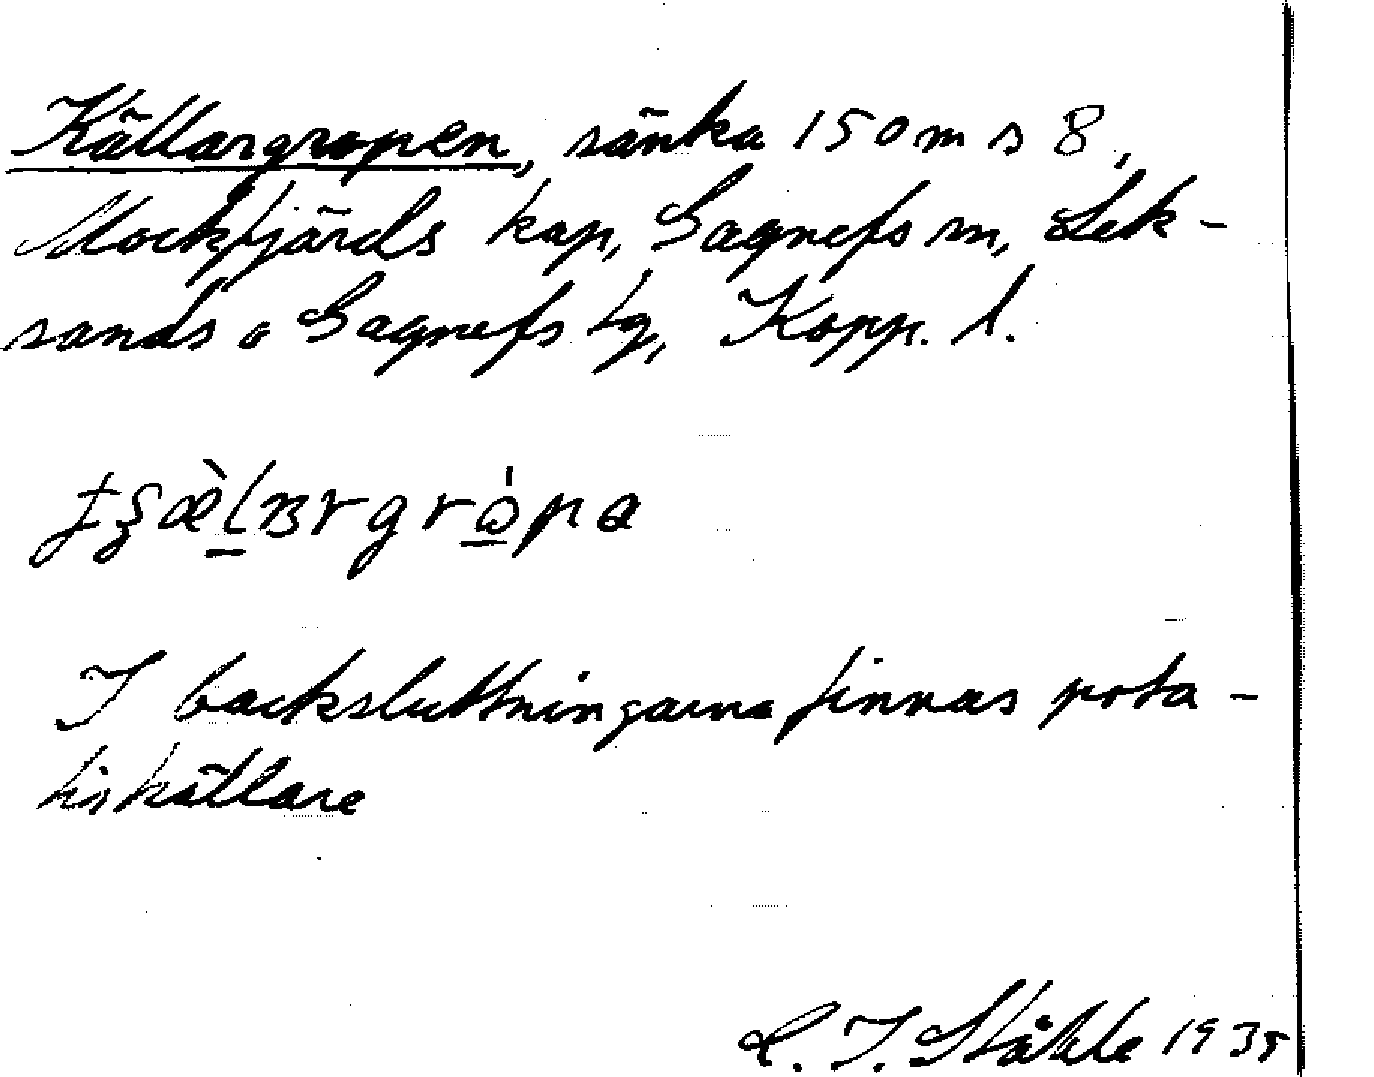 Källargropen, sänka 150 m s 8,
Mockfjärds kap, Gagnefs sn, Lek-
sands o Gagnefs tg, Kopp. l.
I backsluttningarna finnas pota-
tiskällare
C. I. Ståhle 1935